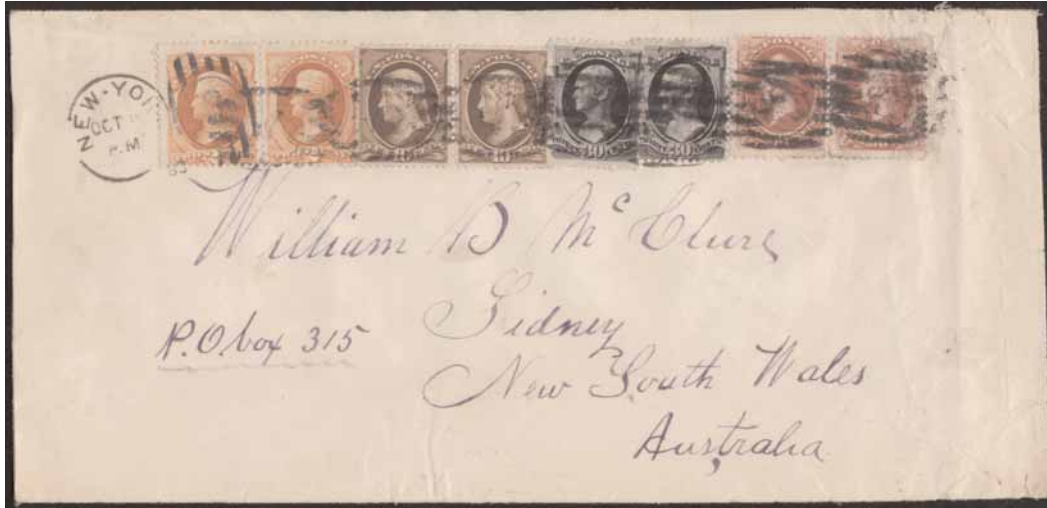 NEW-YO
OCT
P.M
POSTAGE
30 30
William B McClure
P.O.box 315
Sidney
New South Wales
Australia